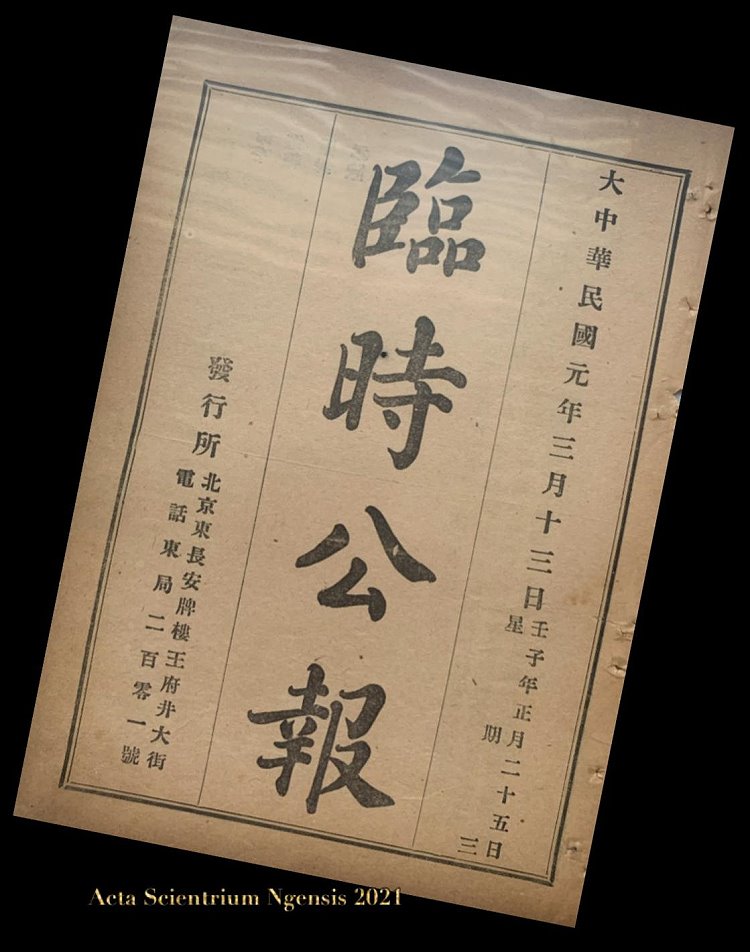 大中華民國元年三月十三日
壬子年正月二十五日
星期三
臨時公報
發行所
北京東長安牌樓王府井大街
電話東局二百零一號
Acta Scientrium Ngensis 2021